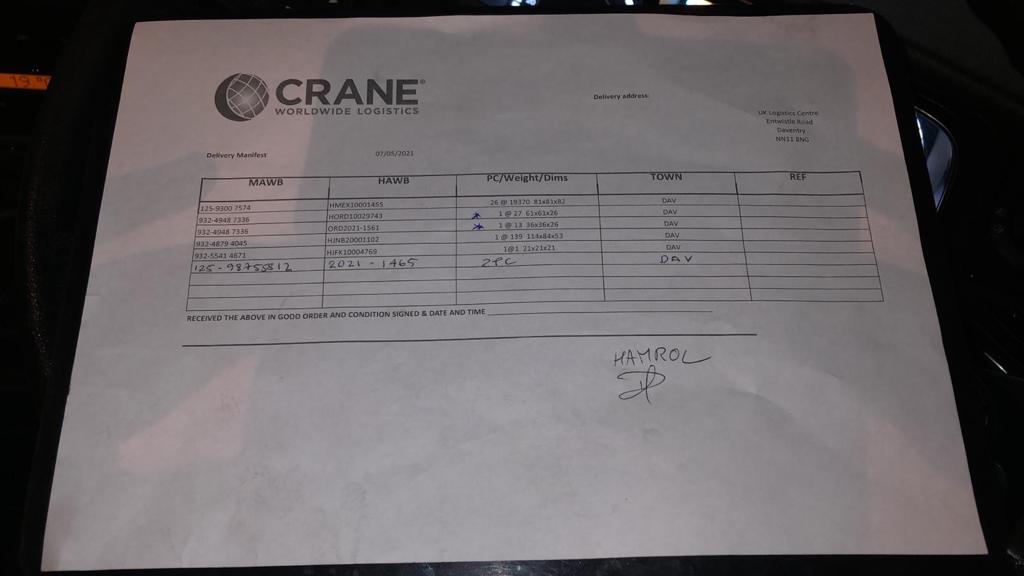 CRANE®
WORLDWIDE LOGISTICS
Delivery address:
UK Logistics Centre
Entwistle Road
Daventry
NN11 8NG
Delivery Manifest 07/05/2021
MAWB HAWB PC/Weight/Dims TOWN REF
125-9300 7574 HMEX10001455 26 @ 19370 81x81x82 DAV
932-4948 7336 HORD10029743 * 1 @ 27 61x61x26 DAV
932-4948 7336 ORD2021-1561 * 1 @ 13 36x36x26 DAV
932-4879 4045 HJNB20001102 1 @ 139 114x84x53 DAV
932-5541 4671 HJFK10004769 1@1 21x21x21 DAV
125-98755812 2021-1465 2PC DAV
RECEIVED THE ABOVE IN GOOD ORDER AND CONDITION SIGNED & DATE AND TIME
HAMROL